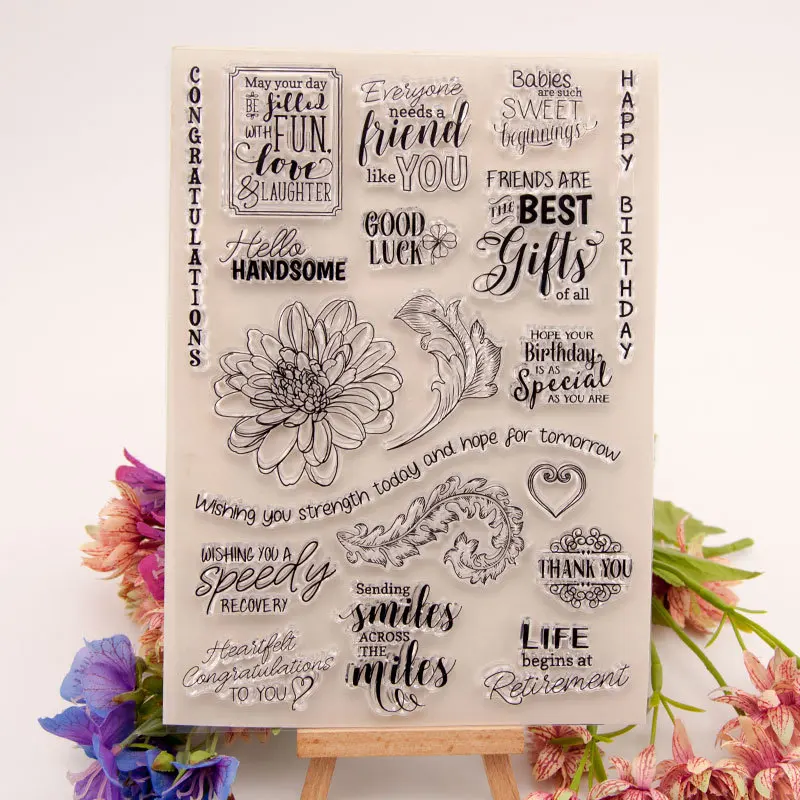 CONGRATULATIONS
May your day
BE filled
WITH FUN,
love
& LAUGHTER
Everyone
needs a
friend
like YOU
Babies
are such
SWEET
beginnings
HAPPY BIRTHDAY
Hello
HANDSOME
GOOD
LUCK
FRIENDS ARE
THE BEST
Gifts
of all
HOPE YOUR
Birthday
IS AS
Special
AS YOU ARE
Wishing you strength today and hope for tomorrow
WISHING YOU A
speedy
RECOVERY
THANK YOU
Heartfelt
Congratulations
TO YOU
Sending
smiles
ACROSS
THE
miles
LIFE
begins at
Retirement